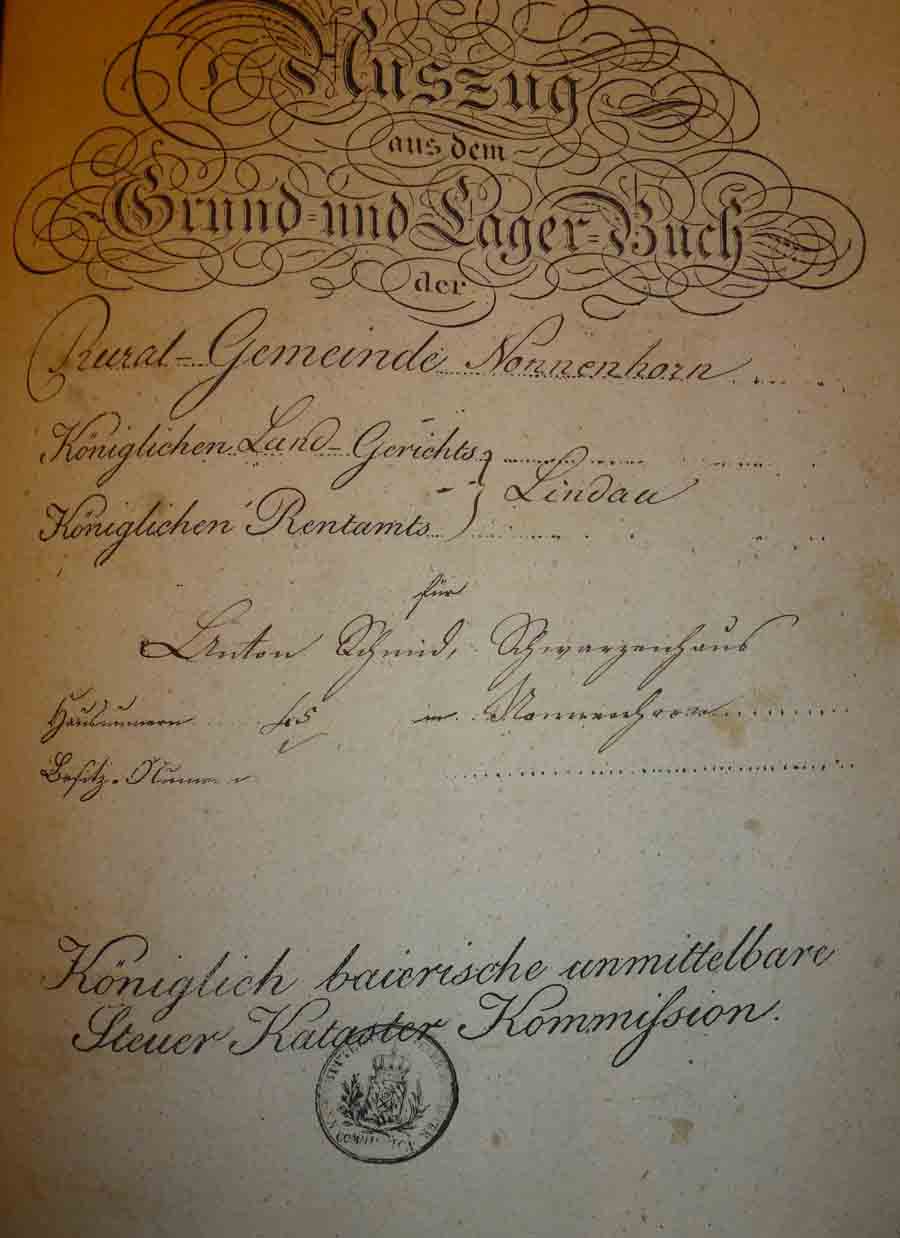 Auszug
aus dem
Grund- und Lager-Buch
der
Rural-Gemeinde Nonnenhorn
Königlichen Land-Gerichts
Lindau
Königlichen Rentamts
für
Anton Schmid, Schwarzenhaus
Hausnumern in Nonnenhorn
Besitz-Numern
Königlich baierische unmittelbare
Steuer Kataster Kommiſsion.